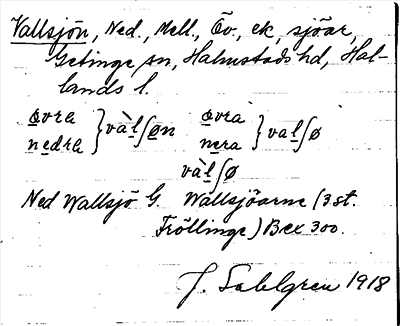 Vallsjön, Ned., Mell., Öv., ek, sjöar,
Getinge sn, Halmstads hd, Hal-
lands l.
øvra } và̀lʃøn øvra } valʃø
nedra nera
và̀lʃø
Ned Wallsjö G. Wallsjöarne (3 st.
Fröllinge) Bex 300.
J. Sahlgren 1918